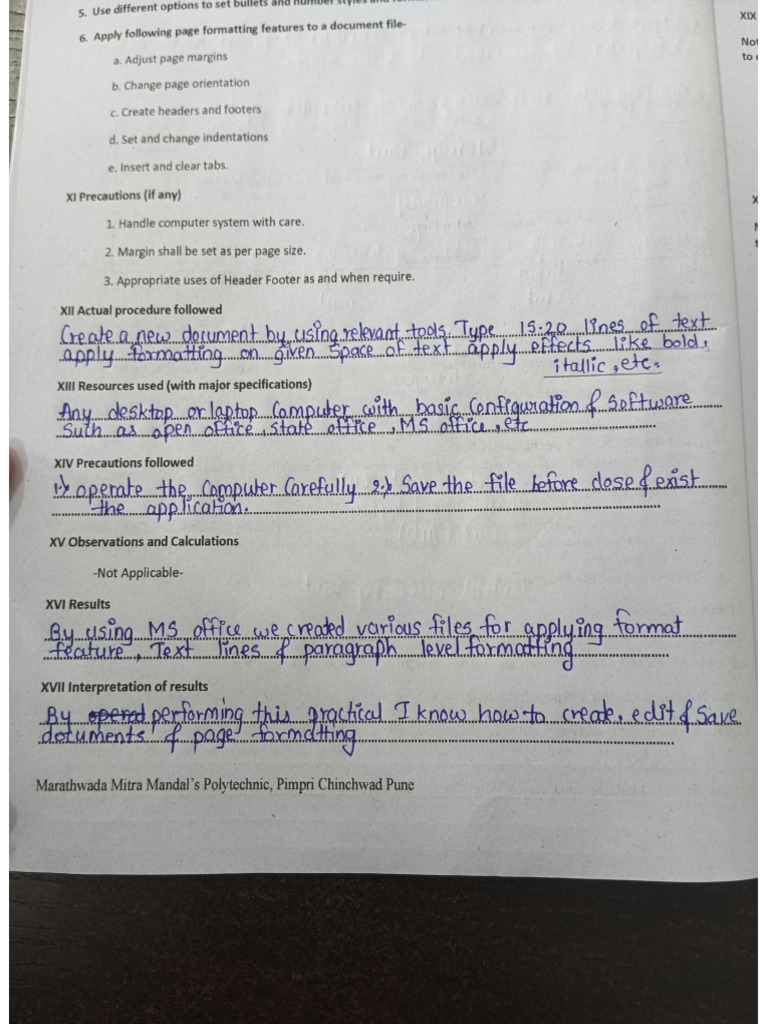 5. Use different options to set bullets and number styles and
6. Apply following page formatting features to a document file-
a. Adjust page margins
b. Change page orientation
c. Create headers and footers
d. Set and change indentations
e. Insert and clear tabs.
XI Precautions (if any)
1. Handle computer system with care.
2. Margin shall be set as per page size.
3. Appropriate uses of Header Footer as and when require.
XII Actual procedure followed
Create a new document by using relevant tools. Type 15-20 lines of text
apply formatting on given space of text apply effects like bold,
itallic, etc.
XIII Resources used (with major specifications)
Any desktop or laptop Computer with basic Configuration & Software
Such as open office, state office, MS office, etc
XIV Precautions followed
1.) operate the Computer Carefully 2.) Save the file before close & exist
the application.
XV Observations and Calculations
-Not Applicable-
XVI Results
By using MS office we created various files for applying format
feature, Text lines & paragraph level formatting
XVII Interpretation of results
By performing this practical I know how to create, edit & Save
documents & page formatting
Marathwada Mitra Mandal's Polytechnic, Pimpri Chinchwad Pune
XIX
Not
to